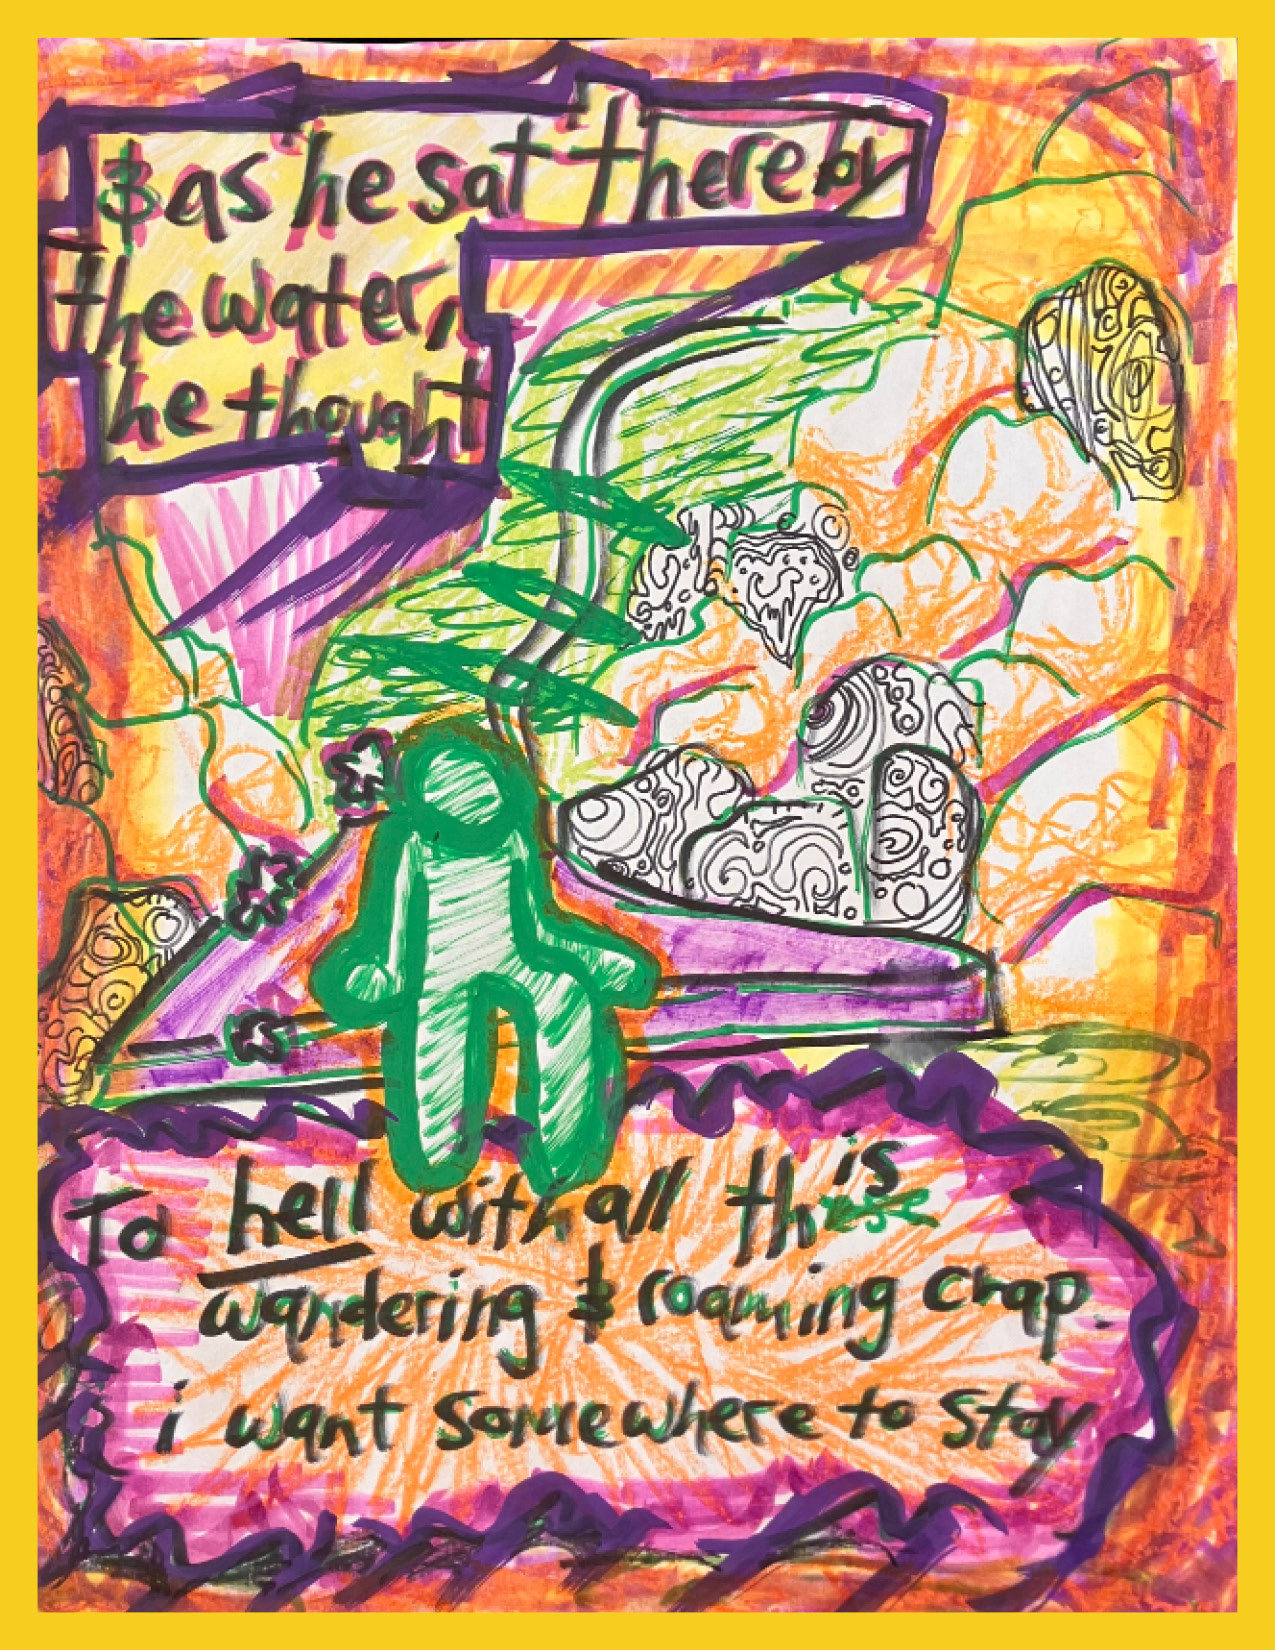 & as he sat there by
the water,
he thought
To hell with all this
wandering & roaming crap.
i want somewhere to stay